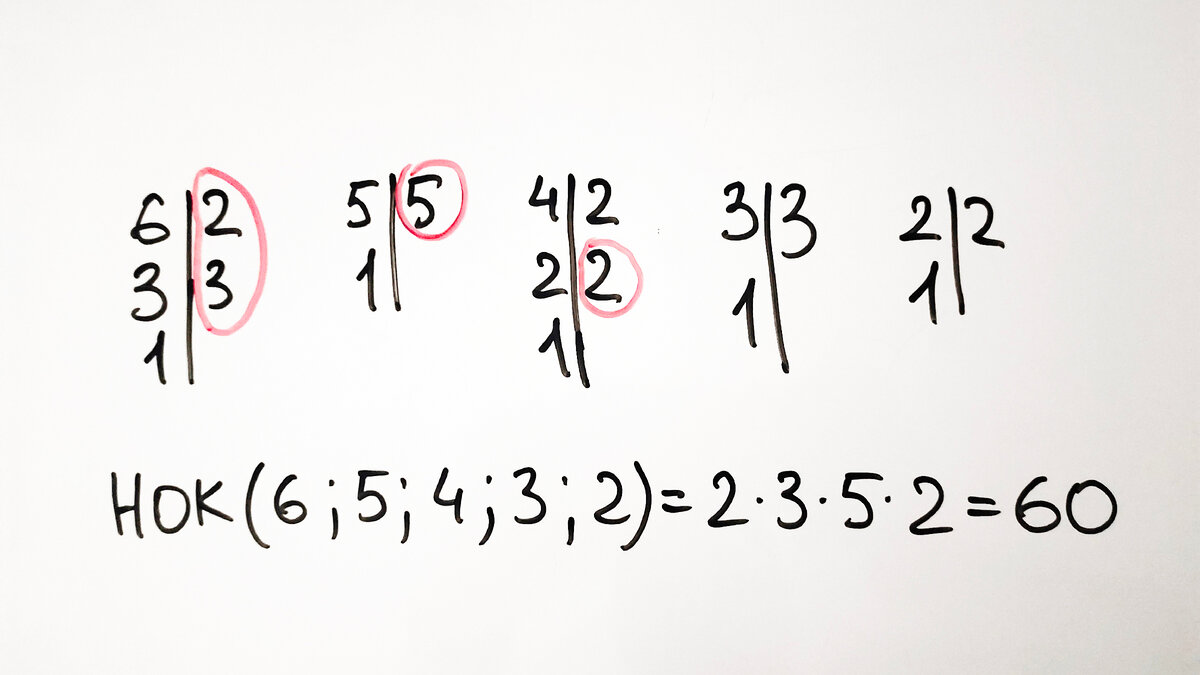 6|2 5|5 4|2 3|3 2|2
3|3 1| 2|2 1| 1|
1| 1|
НОК(6;5;4;3;2)=2·3·5·2=60